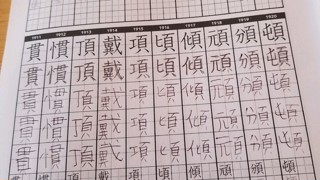 1911 1912 1913 1914 1915 1916 1917 1918 1919 1920
貫 慣 頂 戴 項 頃 傾 頑 頒 頓
貫 慣 頂 戴 項 頃 傾 頑 頒 頓
貫 慣 頂 戴 項 頃 傾 頑 頒 頓
貫 慣 頂 戴 項 頃 傾 頑 頒 頓
貫 慣 頂 戴 項 頃 傾 頑 頒 頓
貫 慣 頂 戴 項 頃 傾 頑 頒 頓